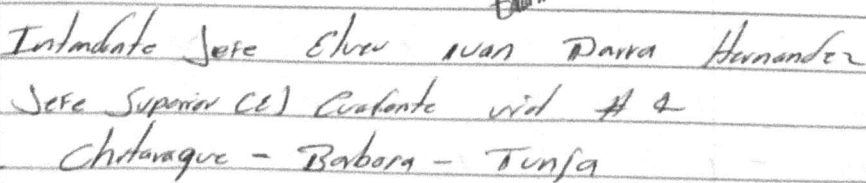 Intendente Jefe Elver Ivan Parra Hernandez
Jefe Superior (E) Cuadrante vial # 2
Chitaraque - Barbosa - Tunja